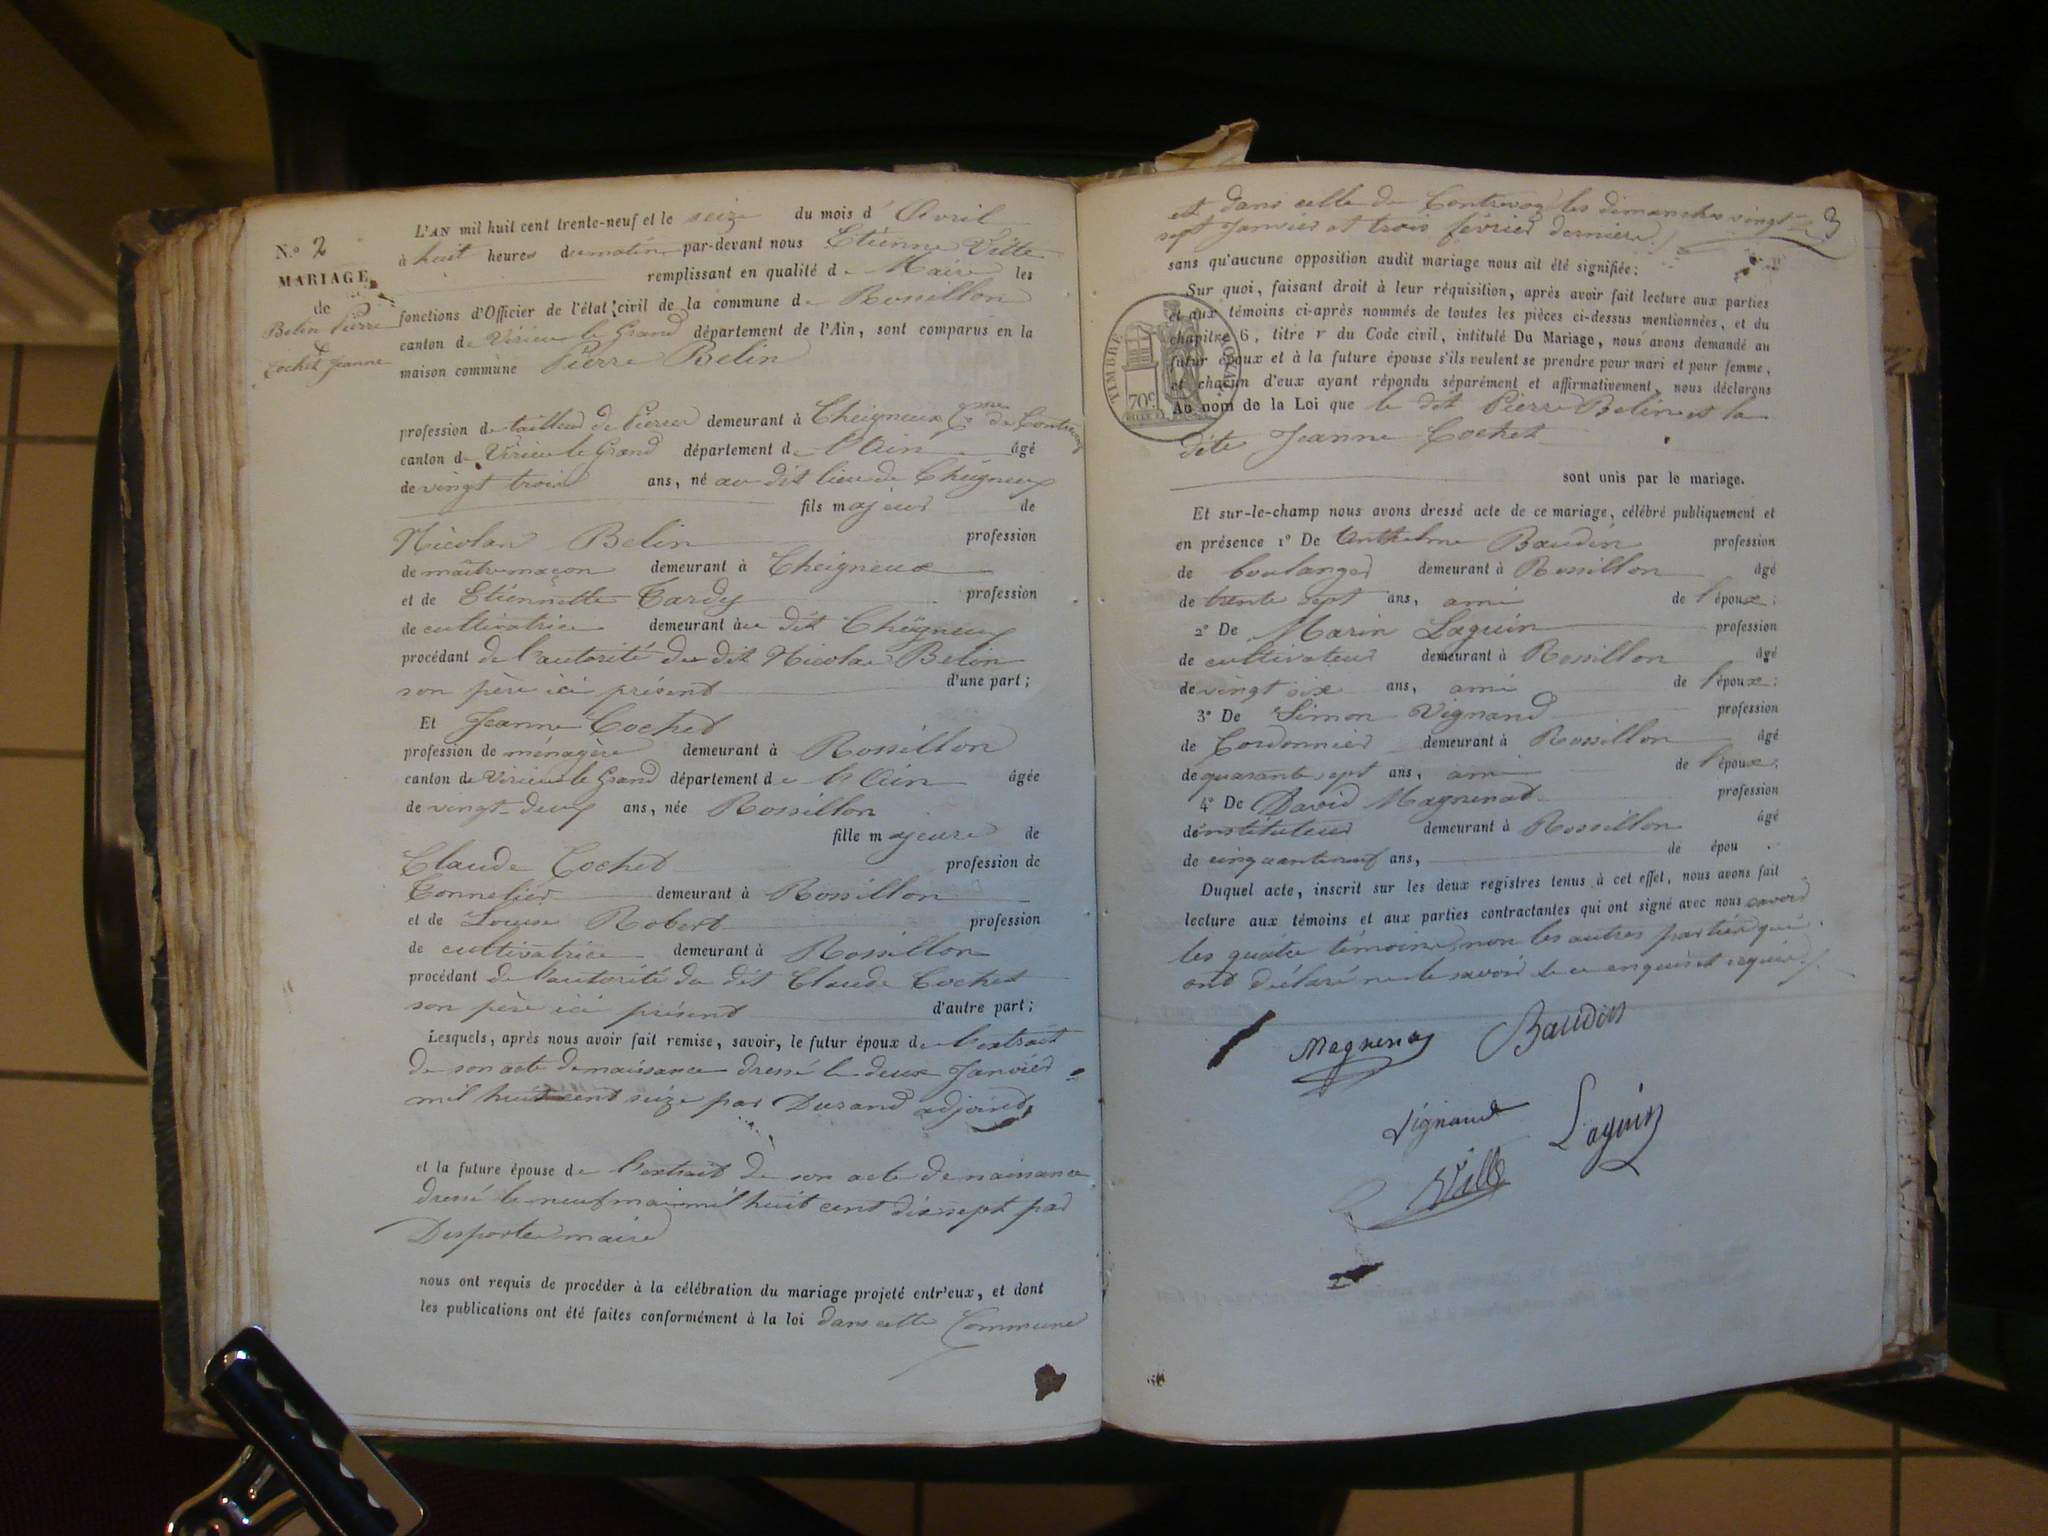 N.º 2
MARIAGE
de
Belin Pierre
&
Cochet Jeanne
L'AN mil huit cent trente-neuf et le seize du mois d' Avril
à huit heures du matin par-devant nous Etienne Ville
remplissant en qualité de Maire les
fonctions d'Officier de l'état civil de la commune de Rossillon
canton de Virieu le Grand département de l'Ain, sont comparus en la
maison commune Pierre Belin
profession de tailleur de Pierres demeurant à Cheigneux Cne de Contrevoz
canton de Virieu le Grand département de l'Ain âgé
de vingt trois ans, né au dit lieu de Cheigneux
fils majeur de
Nicolas Belin profession
de maître maçon demeurant à Cheigneux
et de Etiennette Tardy profession
de cultivatrice demeurant au dit Cheigneux
procédant de l'autorité du dit Nicolas Belin
son père ici présent d'une part;
Et Jeanne Cochet
profession de ménagère demeurant à Rossillon
canton de Virieu le Grand département de l'Ain âgée
de vingt-deux ans, née Rossillon
fille majeure de
Claude Cochet profession de
Tonnelier demeurant à Rossillon
et de Louise Robert profession
de cultivatrice demeurant à Rossillon
procédant de l'autorité du dit Claude Cochet
son père ici présent d'autre part;
Lesquels, après nous avoir fait remise, savoir, le futur époux de l'extrait
de son acte de naissance dressé le deux Janvier
mil huit cent seize par Durand adjoint,
et la future épouse de l'extrait de son acte de naissance
dressé le neuf mai mil huit cent dix sept par
Desportes maire
nous ont requis de procéder à la célébration du mariage projeté entr'eux, et dont
les publications ont été faites conformément à la loi dans cette Commune
3
et dans celle de Contrevoz les dimanches vingt-
sept Janvier et trois février derniers
sans qu'aucune opposition audit mariage nous ait été signifiée;
Sur quoi, faisant droit à leur réquisition, après avoir fait lecture aux parties
et aux témoins ci-après nommés de toutes les pièces ci-dessus mentionnées, et du
chapitre 6, titre v du Code civil, intitulé Du Mariage, nous avons demandé au
futur époux et à la future épouse s'ils veulent se prendre pour mari et pour femme,
et chacun d'eux ayant répondu séparément et affirmativement, nous déclarons
Au nom de la Loi que le dit Pierre Belin et la
dite Jeanne Cochet
TIMBRE ROYAL
70c
sont unis par le mariage.
Et sur-le-champ nous avons dressé acte de ce mariage, célébré publiquement et
en présence 1º De Anthelme Baudin profession
de boulanger demeurant à Rossillon âgé
de trente sept ans, ami de l'époux;
2º De Marin Laguin profession
de cultivateur demeurant à Rossillon âgé
de vingt six ans, ami de l'époux;
3º De Simon Vignand profession
de Cordonnier demeurant à Rossillon âgé
de quarante sept ans, ami de l'époux;
4º De David Magnenat profession
de instituteur demeurant à Rossillon âgé
de cinquante neuf ans, de épou .
Duquel acte, inscrit sur les deux registres tenus à cet effet, nous avons fait
lecture aux témoins et aux parties contractantes qui ont signé avec nous savoir
les quatre témoins, non les autres parties qui
ont déclaré ne le savoir de ce enquis et requis
Magnenat Baudin
Vignand Laguin
Ville